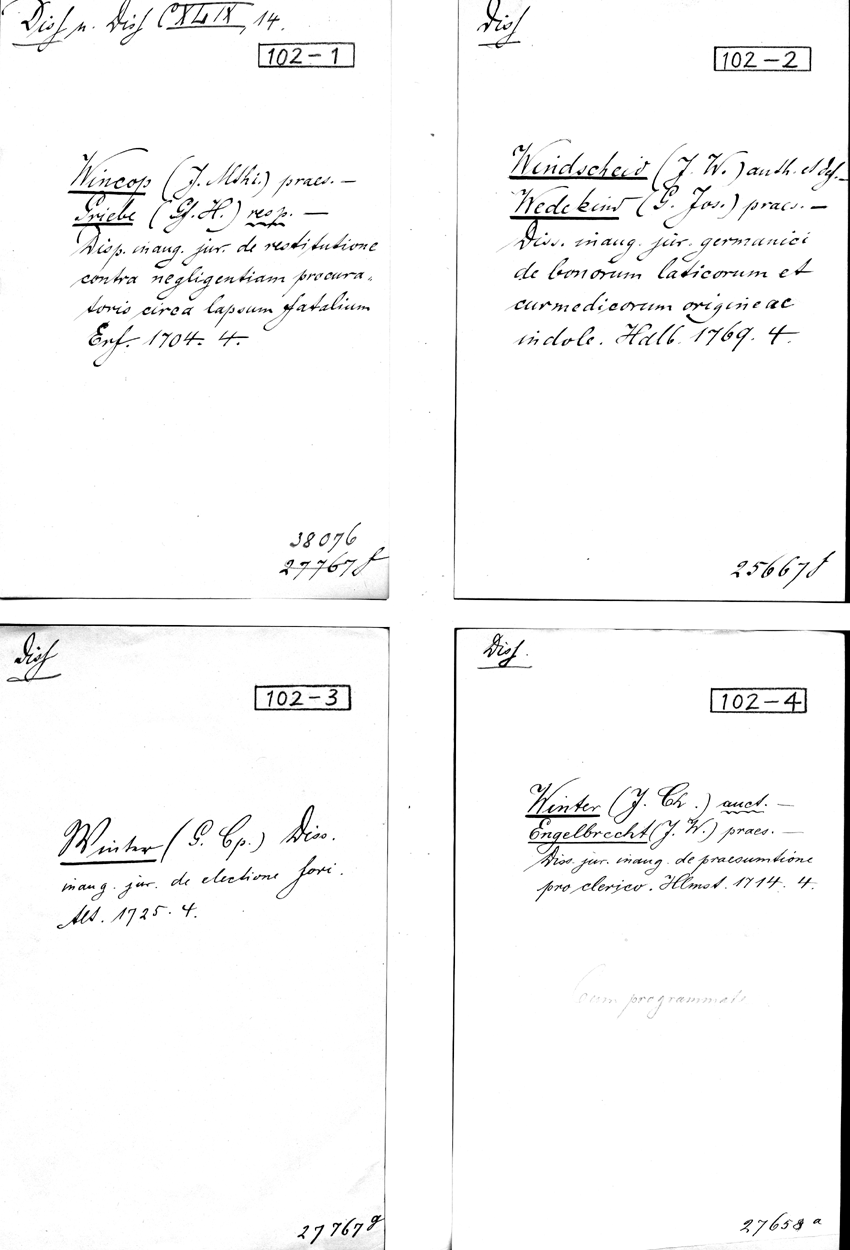 Diss u. Diss CXLIX, 14.
102-1
Wincop (J. Mthi.) praes. —
Griebe (Gf. H.) resp. —
Disp. inaug. jur. de restitutione
contra negligentiam procura-
toris circa lapsum fatalium
Erf. 1704. 4.
38076
27767 f
Diss
102-2
Windscheid (J. W.) auth. et def. —
Wedekind (G. Jos.) praes. —
Diss. inaug. jur. germanici
de bonorum laticorum et
curmedicorum origine ac
indole. Hdlb. 1769. 4.
25667 f
Diss
102-3
Winter (G. Cp.) Diss.
inaug. jur. de electione fori.
Alt. 1725. 4.
27767 g
Diss.
102-4
Winter (J. Ch.) auct. —
Engelbrecht (J. W.) praes. —
Diss. jur. inaug. de praesumtione
pro clerico. Hlmst. 1714. 4.
Cum programmate
27658 a